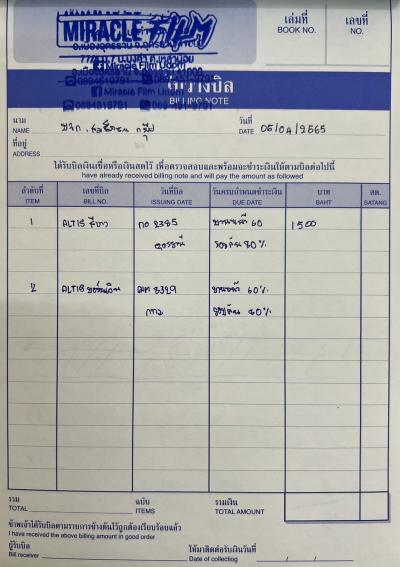 MIRACLE FILM
เล่มที่ BOOK NO.
เลขที่ NO.
Miracle Film Udorn
ใบวางบิล
BILLING NOTE
นาม NAME
วันที่ DATE 05/04/2565
ที่อยู่ ADDRESS
ได้รับบิลเงินเชื่อหรือเงินสดไว้ เพื่อตรวจสอบและพร้อมจะชำระเงินให้ตามบิลต่อไปนี้
have already received billing note and will pay the amount as followed
ลำดับที่ ITEM เลขที่บิล BILL NO. วันที่บิล ISSUING DATE วันครบกำหนดชำระเงิน DUE DATE บาท BAHT สต. SATANG
1 ALTIS สีขาว กอ 2385 บานหน้า 60 1500
อุดรธานี รอบคัน 80%
2 ALTIS 8329 บานหน้า 60%
กทม รอบคัน 80%
รวม TOTAL ฉบับ ITEMS รวมเงิน TOTAL AMOUNT
ข้าพเจ้าได้รับบิลตามรายการข้างต้นไว้ถูกต้องเรียบร้อยแล้ว
I have received the above billing amount in good order
ผู้รับบิล Bill receiver
ให้มาติดต่อรับเงินวันที่ Date of collecting / /